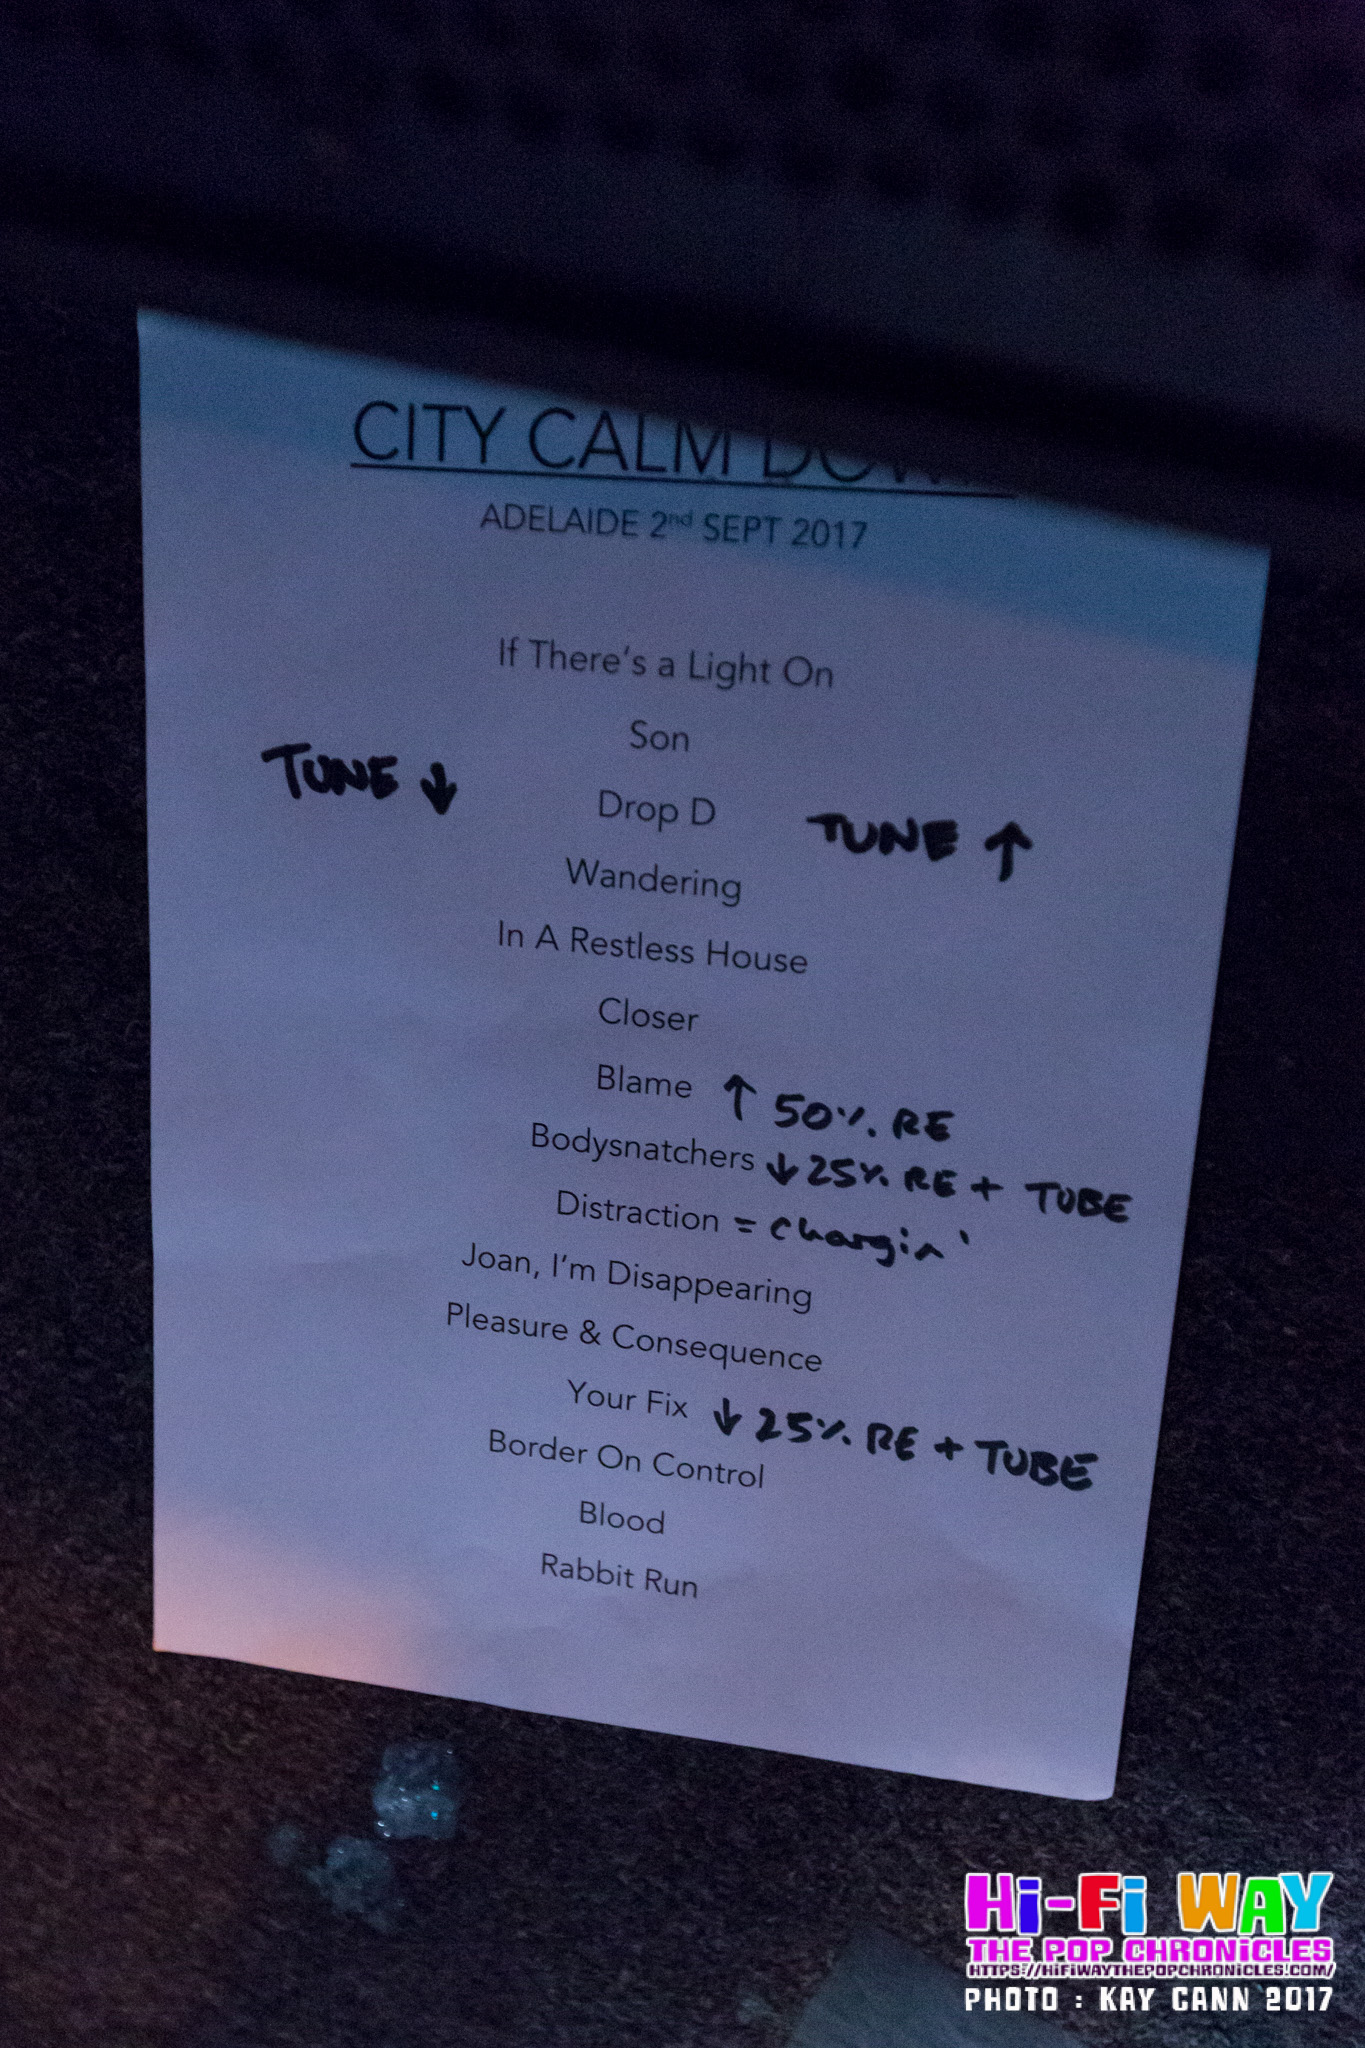 CITY CALM DOWN
ADELAIDE 2nd SEPT 2017
If There's a Light On
Son
TUNE ↓ Drop D TUNE ↑
Wandering
In A Restless House
Closer
Blame ↑ 50% RE
Bodysnatchers ↓ 25% RE + TUBE
Distraction = chargin'
Joan, I'm Disappearing
Pleasure & Consequence
Your Fix ↓ 25% RE + TUBE
Border On Control
Blood
Rabbit Run
Hi-Fi WAY
THE POP CHRONiCLES
HTTPS://HiFiWAYTHEPOPCHRONiCLES.COM/
PHOTO : KAY CANN 2017